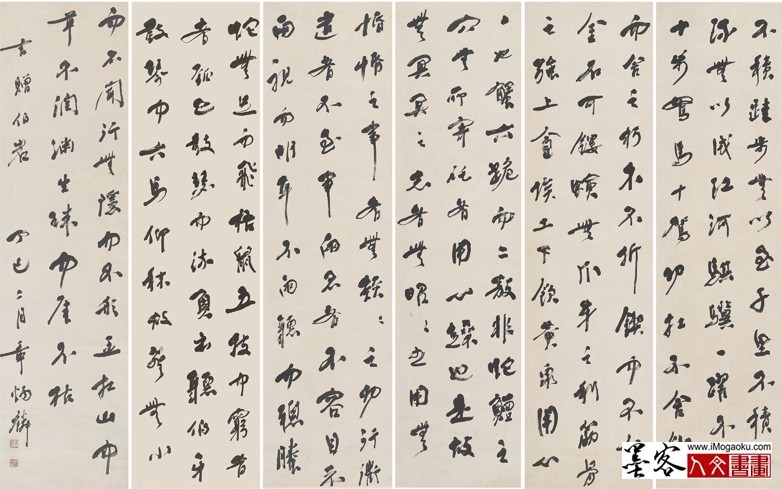 不積跬步無以至千里不積
流無以成江河騏驥一躍不
十步駑馬十駕功在不舍
而舍之朽木不折鍥而不
金石可鏤螾無爪牙之利筋骨
之強上食埃土下飲黃泉用心
一也蟹六跪而二敖非蛇蟺之
穴無所寄託者用心躁也是故
無冥冥之志者無昭〻之明無
惛惛之事者無赫〻之功行衢
道者不至事兩君者不容目不
兩視而明耳不兩聽而聰螣
蛇無足而飛梧鼠五技而窮昔
者瓠巴鼓瑟而流魚出聽伯牙
鼓琴而六馬仰秣故聲無小
而不聞行無隱而不形玉在山而
草木潤淵生珠而崖不枯
書贈伯嵒 丁巳二月章炳麟
墨客 www.iMogaoku.com
人文書畫